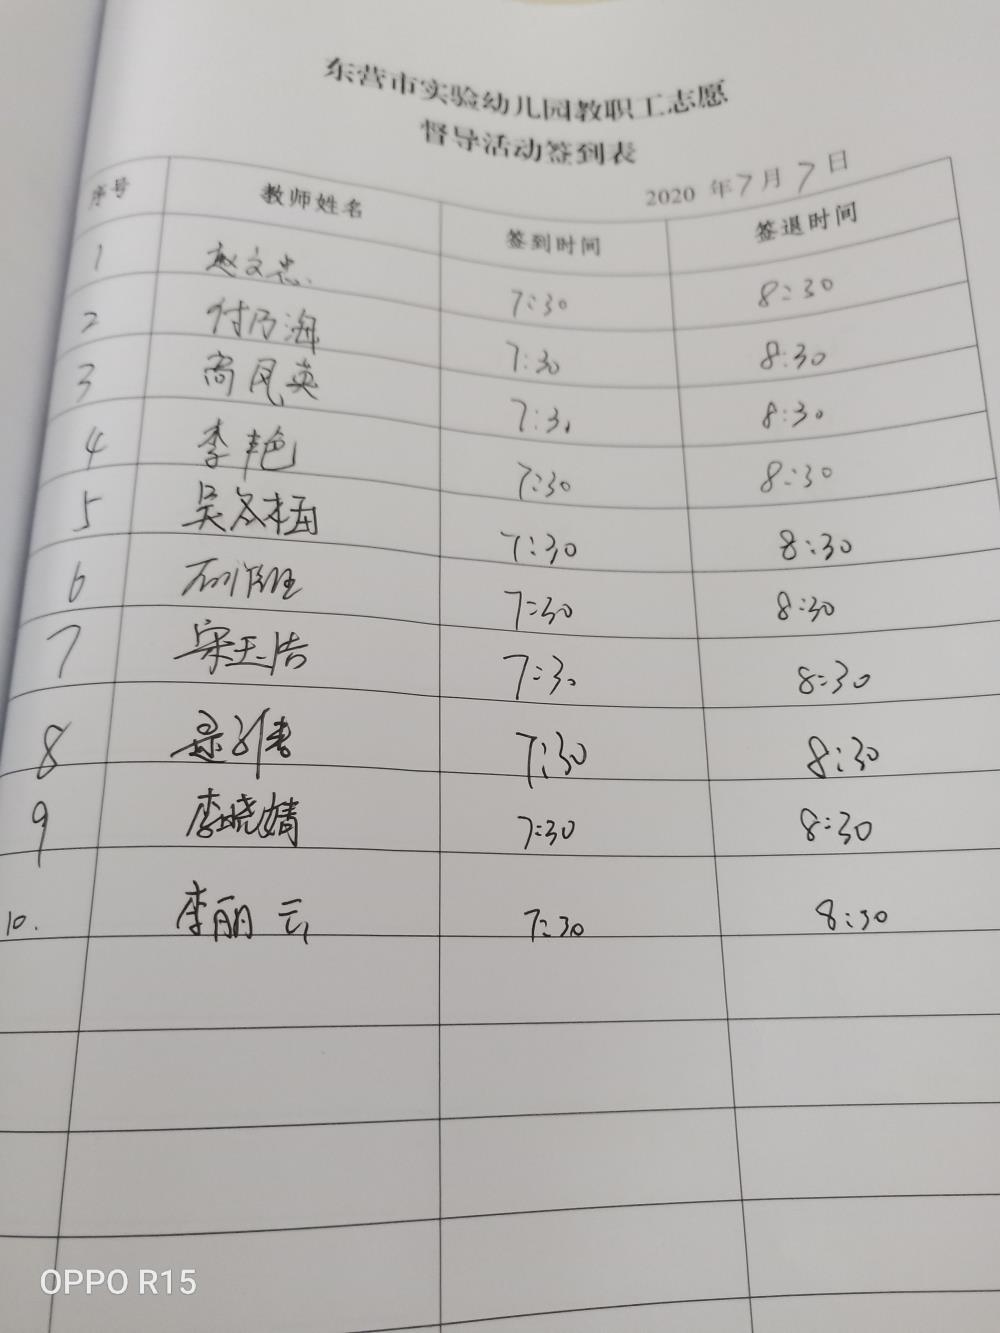 东营市实验幼儿园教职工志愿
督导活动签到表
2020 年 7 月 7 日
序号 教师姓名 签到时间 签退时间
1 赵文忠 7:30 8:30
2 付乃海 7:30 8:30
3 高凤英 7:30 8:30
4 李艳 7:30 8:30
5 吴冬梅 7:30 8:30
6 7:30 8:30
7 宋玉洁 7:30 8:30
8 7:30 8:30
9 李晓婧 7:30 8:30
10. 李丽云 7:30 8:30
OPPO R15